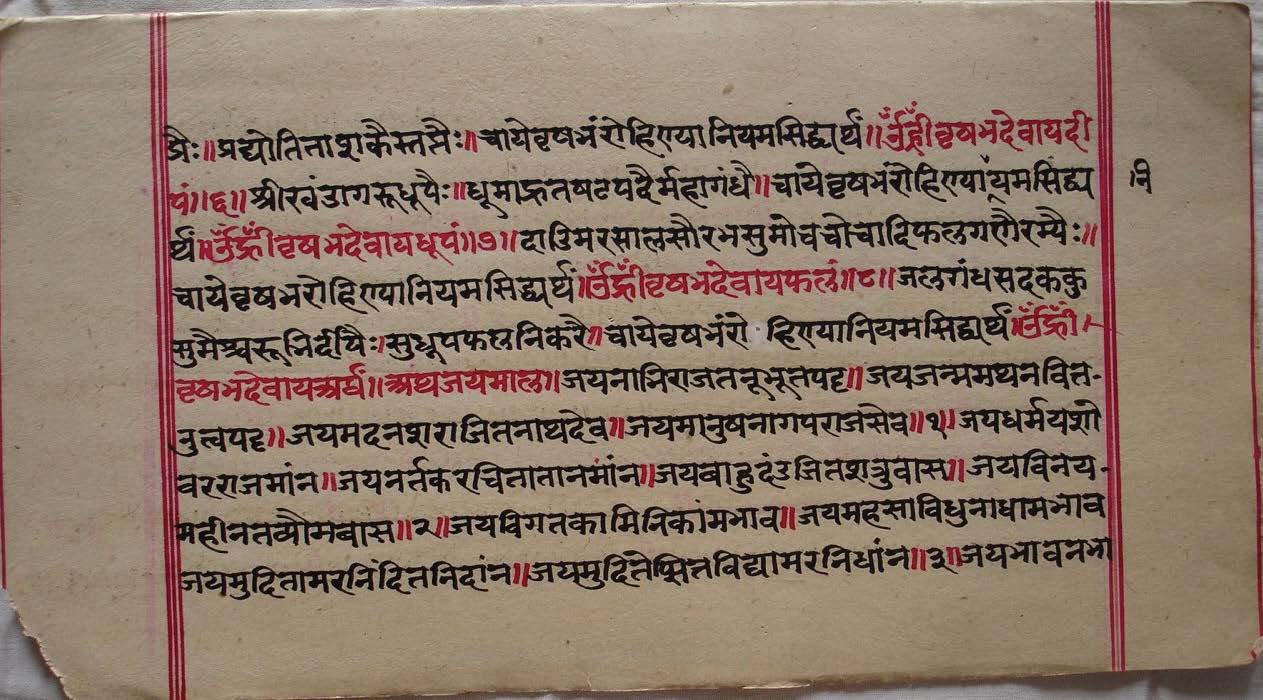 त्रैः॥प्रद्योतिताशकैस्तमैः॥चायेवृषभंरोहिण्यानियमसिद्ध्यार्थं॥ॐह्रींवृषभदेवायदी
पं॥६॥श्रीखंडागरूधूपैः॥धूमाहृतषट्पदैर्महागंधै॥चायेवृषभंरोहिण्यायमसिद्ध्य
नि
र्थं॥ॐह्रींवृषभदेवायधूपं॥७॥दाडिमरसालसौरभसुमोचचोचादिफलगणैरम्यैः॥
चायेवृषभरोहिण्यानियमसिद्ध्यर्थं॥ॐह्रींवृषभदेवायफलं॥८॥जलगंधसदककु
सुमैश्चरूनिर्दीयैः॥सुधूपफलनिकरै॥चायेवृषभंरो हिण्यानियमसिद्ध्यर्थं॥ॐह्रीं
वृषभदेवायअर्घं॥अथजयमाल॥जयनाभिराजतनूभूतपदृ॥जयजन्ममथनवित-
नुत्वपदृ॥जयमदनशराजितनाथदेव॥जयमानुषनागपराजसेव॥१॥जयधर्मयशो
वरराजमांन॥जयनर्तकरचितातानमांन॥जयबाहुदंडजितशत्रुवास॥जयविनेय-
महीनतव्यौमवास॥२॥जयविगतकामिनिकांमभाव॥जयमहसाविधुनाधामभाव
जयमुदितामरनिंदितनिदांन॥जयमुदितेप्सितविद्यामरनिधांन॥३॥जयभावनभा